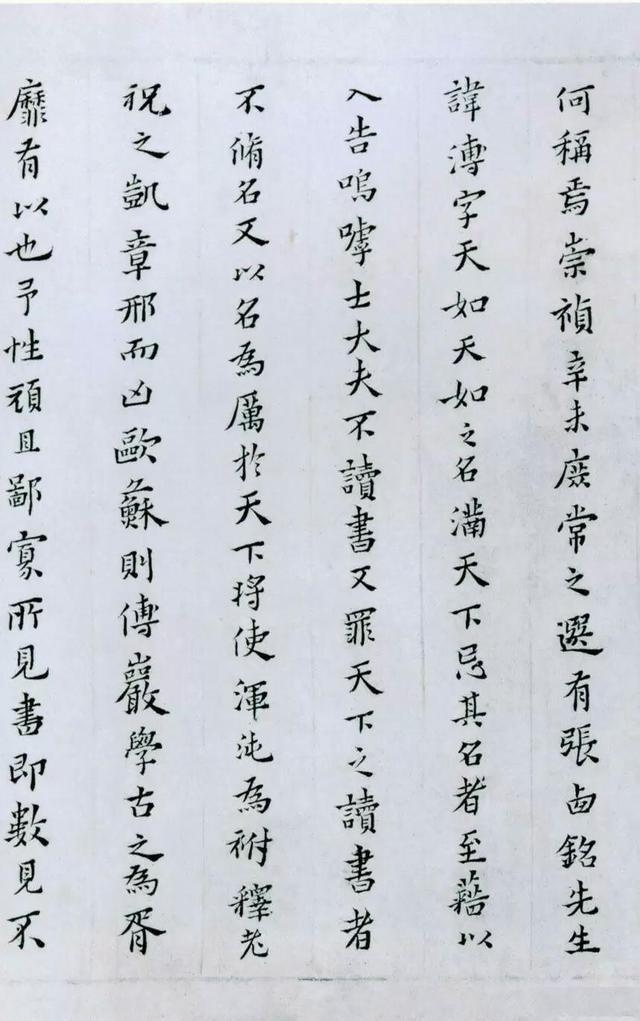 何稱焉崇禎辛未庶常之選有張卥銘先生
諱溥字天如天如之名滿天下忌其名者至藉以
入告嗚嘑士大夫不讀書又罪天下之讀書者
不脩名又以名為厲於天下將使渾沌為祔釋老
祝之凱章邢而凶歐蘇則傅巖學古之為胥
靡有以也予性頑且鄙寡所見書即數見不